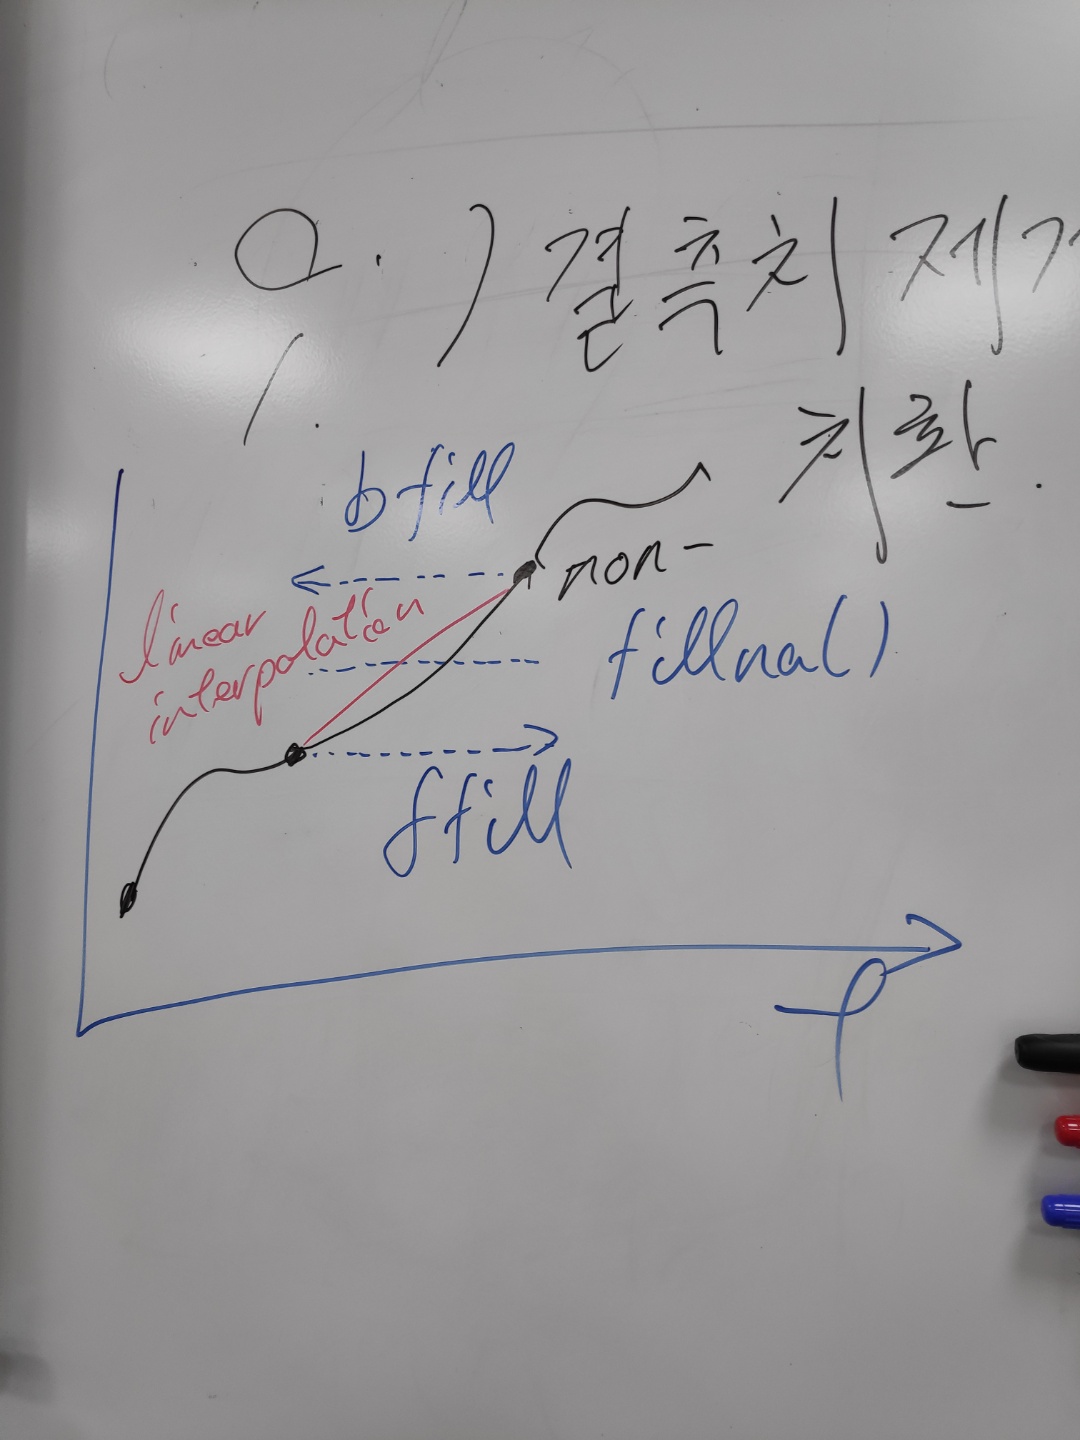 Q. ) 결측치 제거
1.
치환.
bfill
non-
linear
interpolation
fillna()
ffill